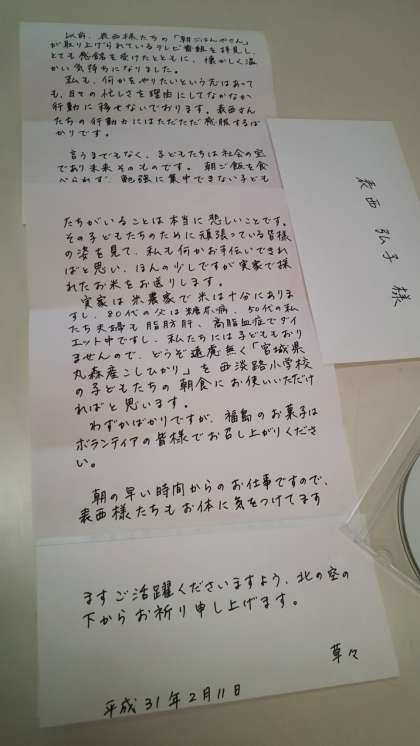 以前、表西様たちの「朝ごはんやさん」
が取り上げられているテレビ番組を拝見し、
とても感銘を受けたとともに、懐かしく温
かい気持ちになりました。
私も、何かをやりたいという思いはあって
も、日々の忙しさを理由にしてなかなか
行動に移せないでおります。表西さん
たちの行動力にはただただ感服するば
かりです。
言うまでもなく、子どもたちは社会の宝
であり未来そのものです。朝ご飯を食
べられず、勉強に集中できない子ども
たちがいることは本当に悲しいことです。
その子どもたちのために頑張っている皆様
の姿を見て、私も何かお手伝いできれ
ばと思い、ほんの少しですが実家で採
れたお米をお送りします。
実家は米農家で米は十分にありま
すし、80代の父は糖尿病、50代の私
たち夫婦も脂肪肝、高脂血症でダイ
エット中ですし、私たちには子どももおり
ませんので、どうぞ遠慮無く「宮城県
丸森産こしひかり」を西淡路小学校
の子どもたちの朝食にお使いいただけ
ればと思います。
わずかばかりですが、福島のお菓子は
ボランティアの皆様でお召し上がりくださ
い。
朝の早い時間からのお仕事ですので、
表西様たちもお体に気をつけてます
ますご活躍くださいますよう、北の空の
下からお祈り申し上げます。
草々
平成31年2月11日
表西 弘子 様